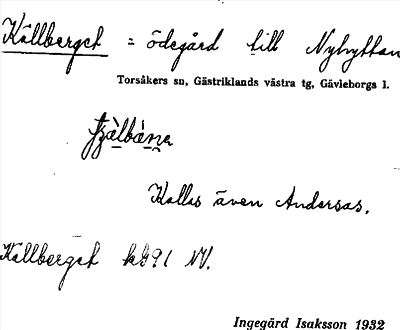 Källberget = ödegård till Nyhyttan
Torsåkers sn, Gästriklands västra tg, Gävleborgs l.
Kallas även Andersas.
Källberget kg91 NV.
Ingegärd Isaksson 1932